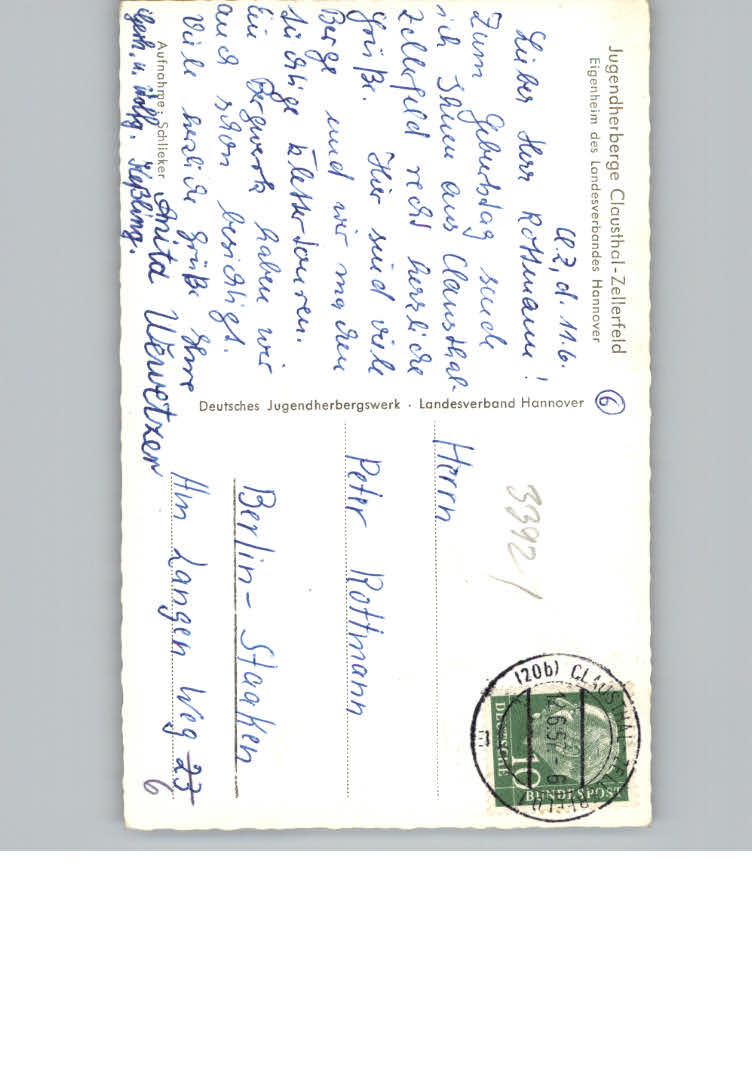 Jugendherberge Clausthal-Zellerfeld
Eigenheim des Landesverbandes Hannover
Cl.Z, d. 11.6.
Lieber Herr Rottmann!
Zum Geburtstag sende
ich Ihnen aus Clausthal-
Zellerfeld recht herzliche
Grüße. Hier sind viele
Berge und wir machen
tüchtige Klettertouren.
Ein Bergwerk haben wir
auch schon besichtigt.
Viele herzliche Grüße Ihre
Anita Werwetzer
Aufnahme: Schlieker
Deutsches Jugendherbergswerk · Landesverband Hannover
6
3392
Herrn
Peter Rottmann
Berlin-Staaken
Am Langen Weg 23
6
(20b) CLAUSTHAL-ZELLERFELD
12.6.57.-6
DEUTSCHE
BUNDESPOST
10